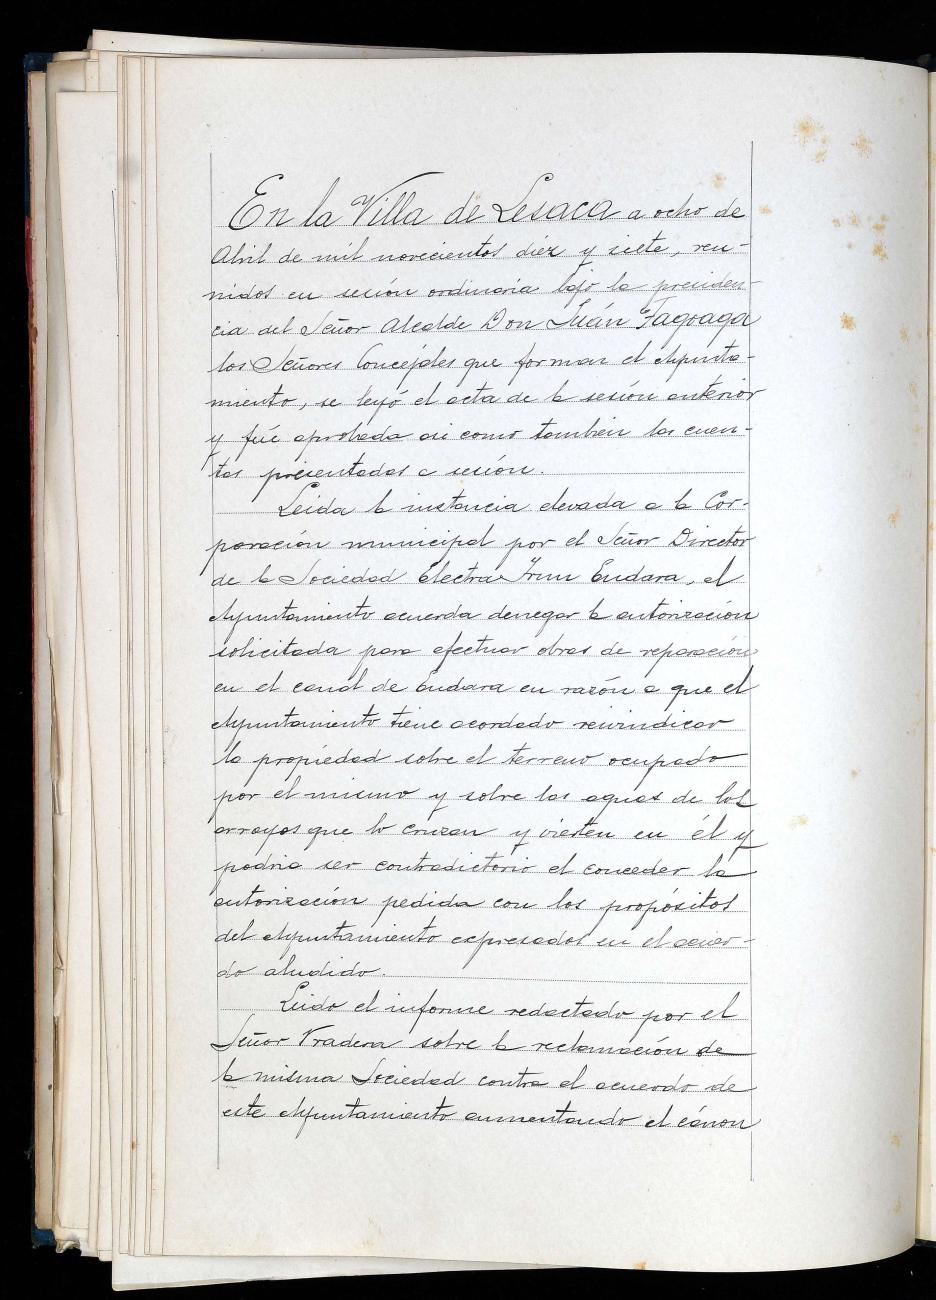 En la Villa de Lesaca a ocho de
Abril de mil novecientos diéz y siete, reu-
nidos en sesión ordinaria bajo la presiden-
cia del Señor Alcalde Don Juán Tagoaga
los Señores Concejales que forman el Ayunta-
miento, se leyó el acta de la sesión anterior
y fué aprobada asi como tambien las cuen-
tas presentadas a sesión.
Leida la instancia elevada a la Cor-
poración municipal por el Señor Director
de la Sociedad Electra Irun Endara, el
Ayuntamiento acuerda denegar la autorización
solicitada para efectuar obras de reparación
en el canal de Endara en razón a que el
Ayuntamiento tiene acordado reivindicar
la propiedad sobre el terreno ocupado
por el mismo y sobre las aguas de los
arroyos que lo cruzan y vierten en él y
podria ser contradictorio el conceder la
autorización pedida con los propósitos
del Ayuntamiento expresados en el acuer-
do aludido.
Leido el informe redactado por el
Señor Pradera sobre la reclamación de
la misma Sociedad contra el acuerdo de
este Ayuntamiento aumentando el cánon